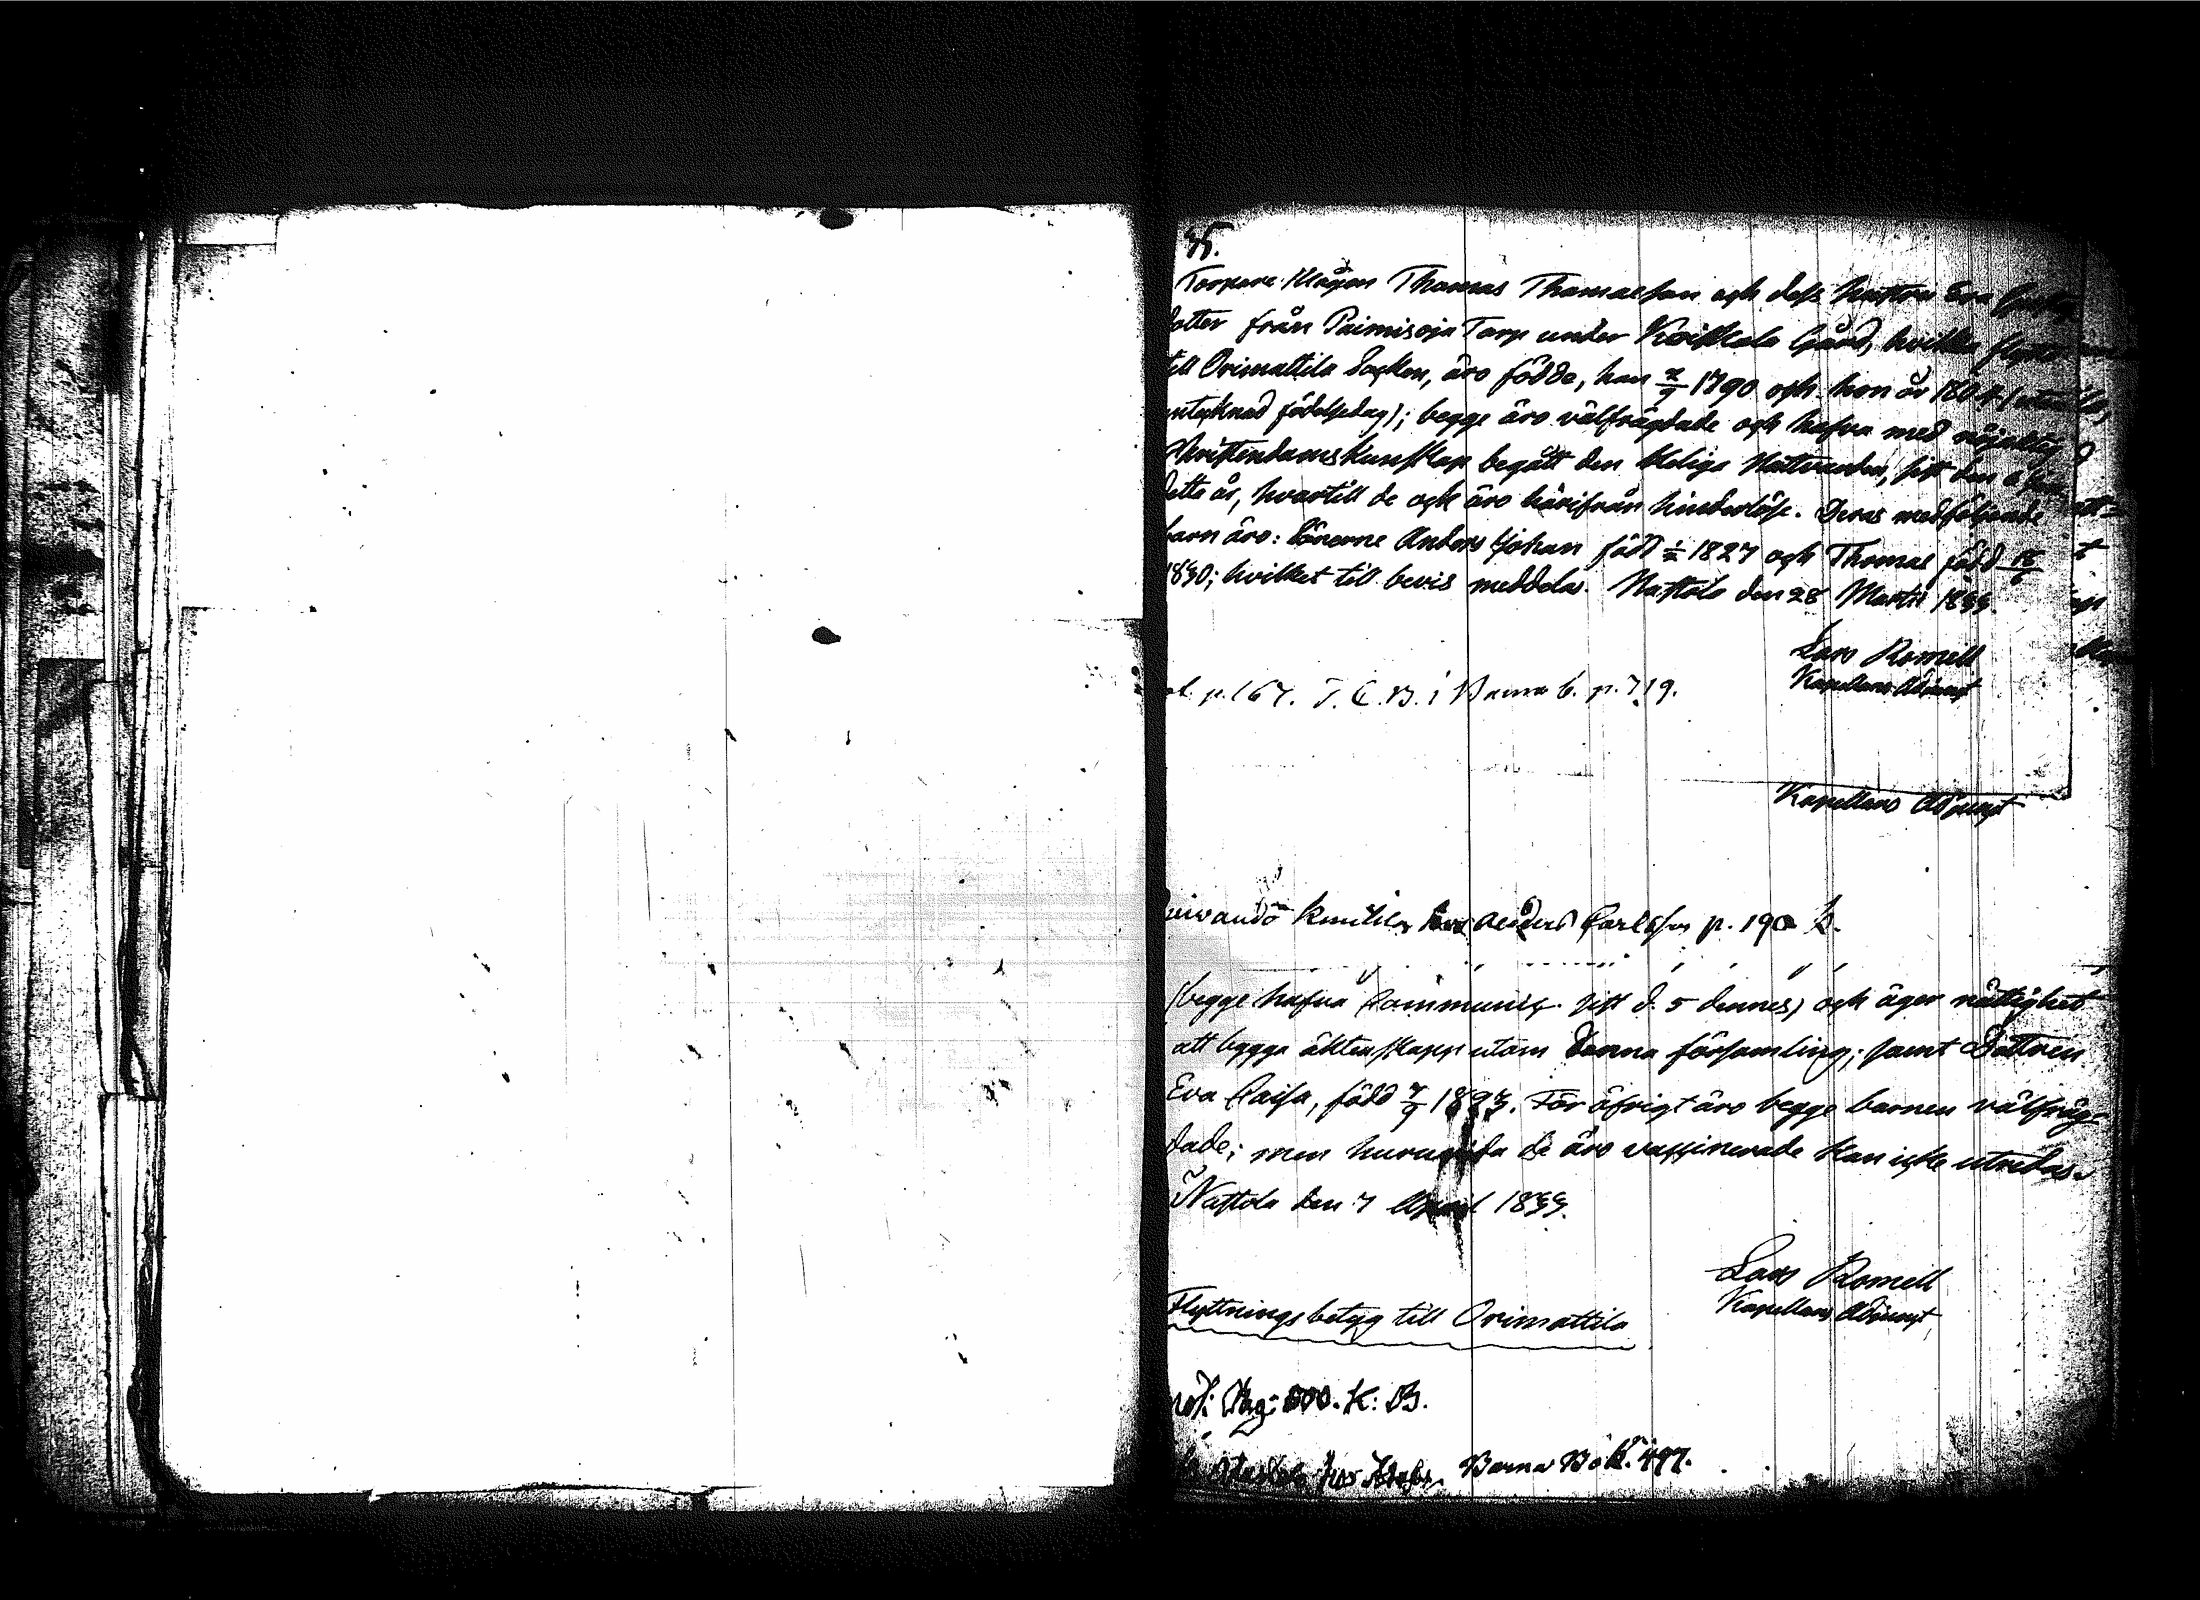 35.
Torpare Mågen Thomas Thomasson och dess hustru Eva
dotter från Paimisoja Torp under Koiskala Gård, hvilka flytta
till Orimattila Socken, äro födde, han 2/9 1790 och hon år 1804 (utan
antecknad födelsedag); begge äro välfrägdade och hafva med nöjaktig
Christendomskunskap begått den Heliga Nattvarden, sist den 6
detta år, hvartill de ock äro härifrån hinderlöse. Deras medföljande
barn äro: Sönerne Anders Johan född 1/2 1827 och Thomas född 18/6
1830; hvilket till bevis meddelas. Nastola den 28 Martii 1833.
Lars Romell
Kapellans Adjunct
p. 167. T. C. B. i Barna b. p. 719.
Kapellans Adjunct
Anders Carlsson p. 190 b.
(begge hafva communic. sist d. 5 dennes) och äger rättighet
att bygga äktenskapp utom denna församling; samt Dottren
Eva Caisa, född 7/9 1823. För öfrigt äro begge barnen välfräg-
dade; men huruvida de äro vaccinerade kan icke utredas.
Nastola den 7 April 1833.
Lars Romell
Kapellans Adjunct
Flyttningsbetyg till Orimattila
Pag: 500. K: B.
Barna Bok. 497.